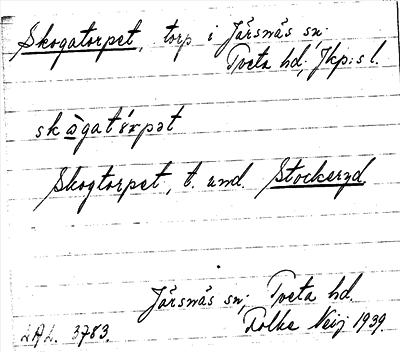 Skogatorpet, torp i Järsnäs sn;
Tveta hd, Jkp:s l.
skògatórpət
Skogtorpet, t. und. Stockeryd
Järsnäs sn; Tveta hd.
LAL. 3783.
Folke Neij 1939.